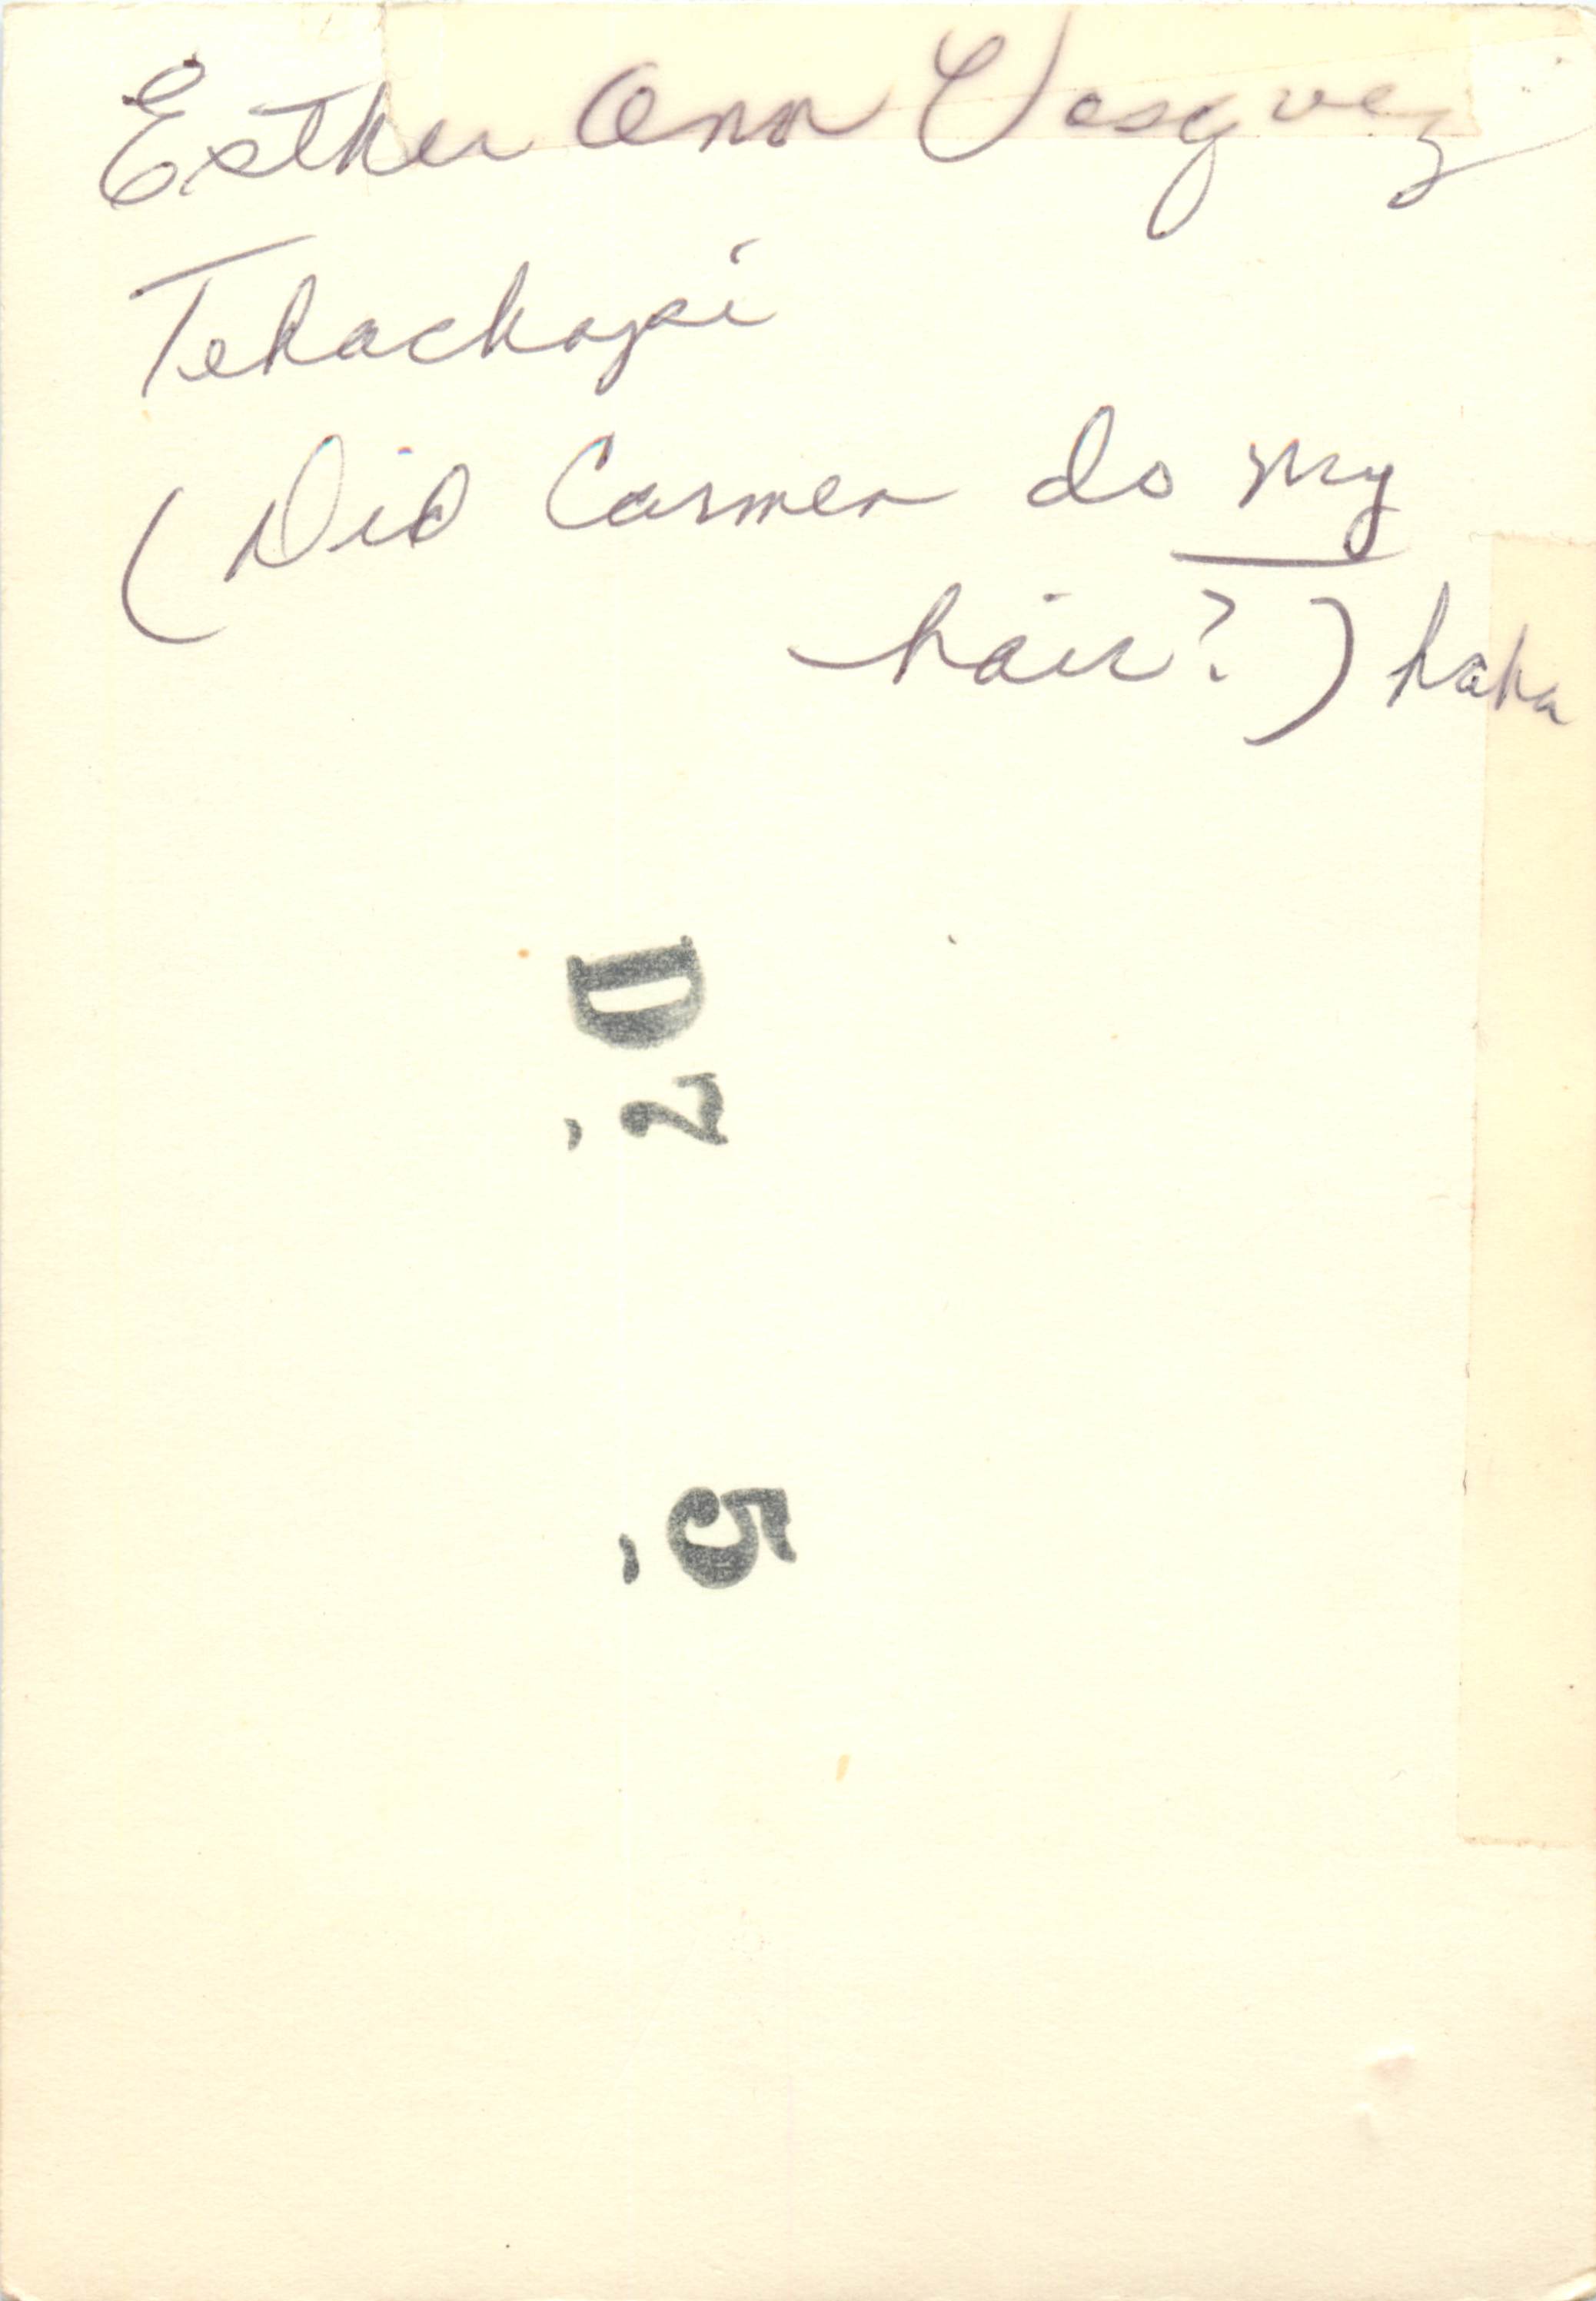 Esther Ann Vasquez
Tehachapi
(Did Carmen do my
hair?) haha
D 2,
5,